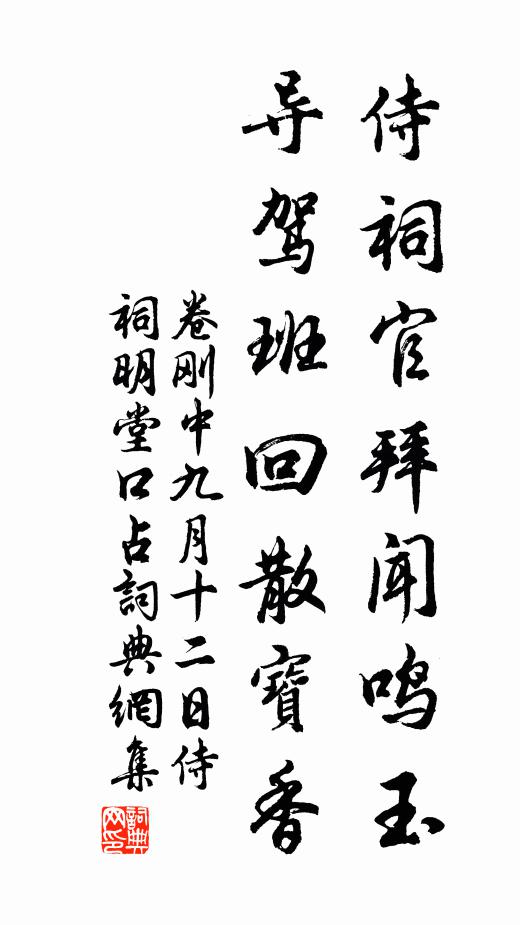 侍祠官拜闻鸣玉
导驾班回散寶香
卷刚中九月十二日侍
祠明堂口占詞典網集
詞典
网印